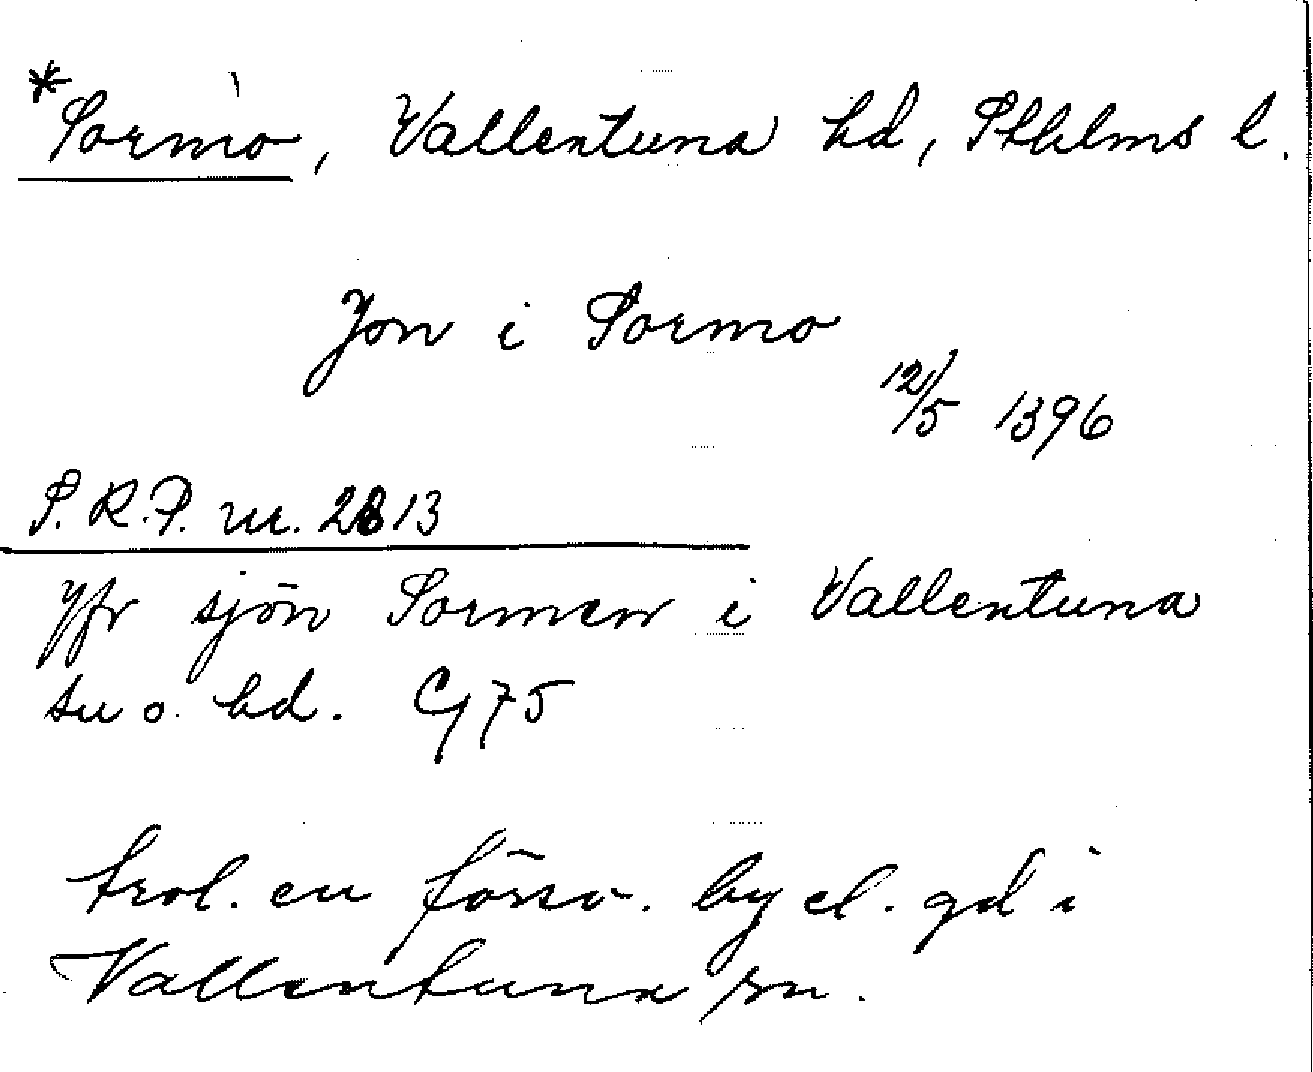 *Sormo, Vallentuna hd, Sthlms l.
Jon i Sormo
12/5 1396
S.R.P. nr. 2813
Jfr sjön Sormen i Vallentuna
sn o. hd. GJ 75
trol. en försv. by el. gd i
Vallentuna sn.